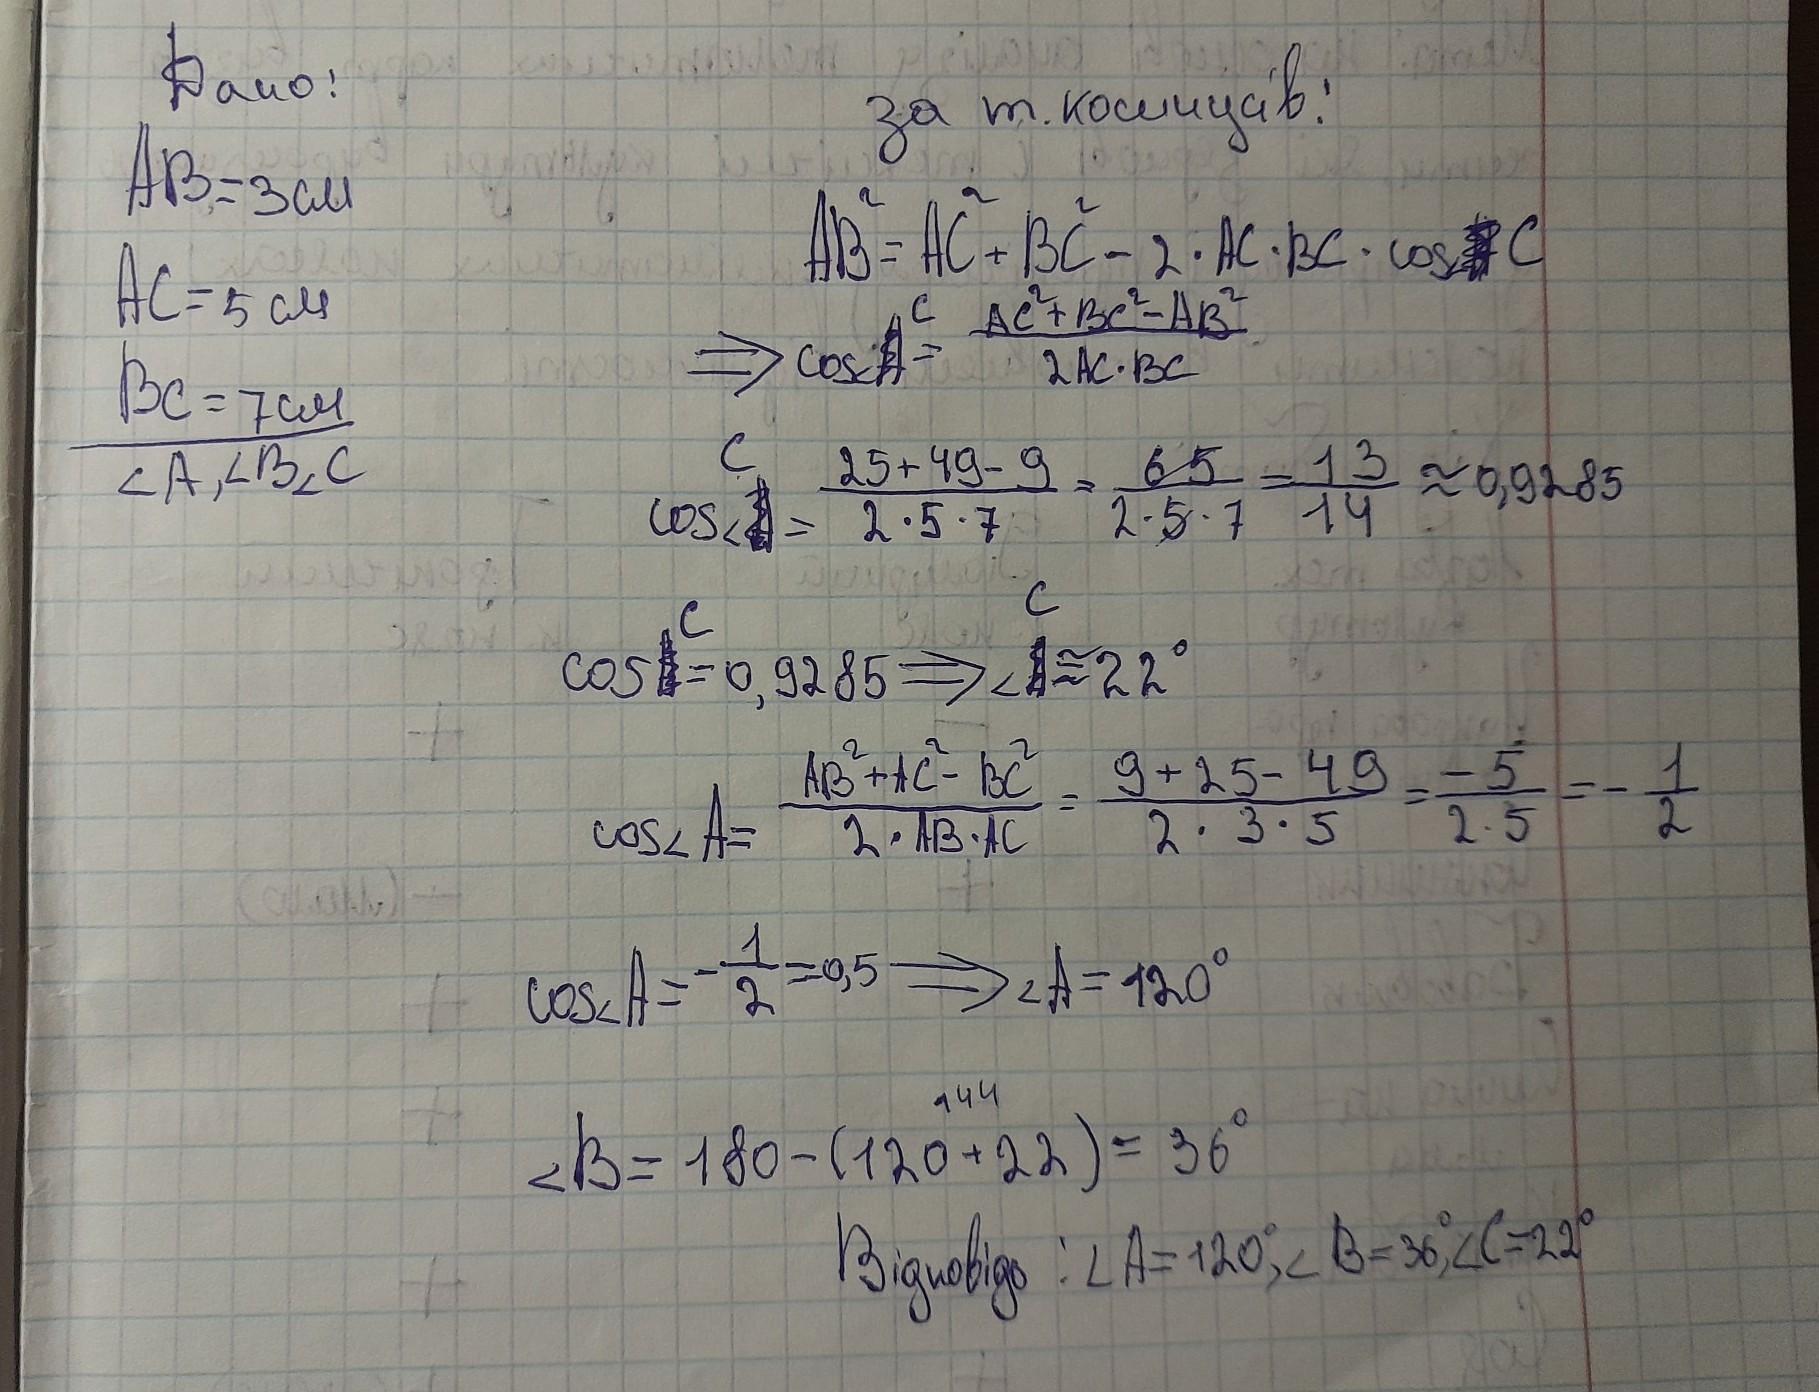 Дано:
AB = 3 см
AC = 5 см
BC = 7 см
∠A, ∠B ∠C
за т. косинусів:
AB² = AC² + BC² - 2 · AC · BC · cos∠C
⇒ cos∠C = (AC² + BC² - AB²) / (2AC · BC)
cos∠C = (25 + 49 - 9) / (2 · 5 · 7) = 65 / (2 · 5 · 7) = 13 / 14 ≈ 0,9285
cos C = 0,9285 ⇒ ∠C ≈ 22°
cos∠A = (AB² + AC² - BC²) / (2 · AB · AC) = (9 + 25 - 49) / (2 · 3 · 5) = -5 / (2 · 5) = - 1/2
cos∠A = - 1/2 = 0,5 ⇒ ∠A = 120°
144
∠B = 180 - (120 + 22) = 36°
Відповідь : ∠A = 120°, ∠B = 36°, ∠C = 22°